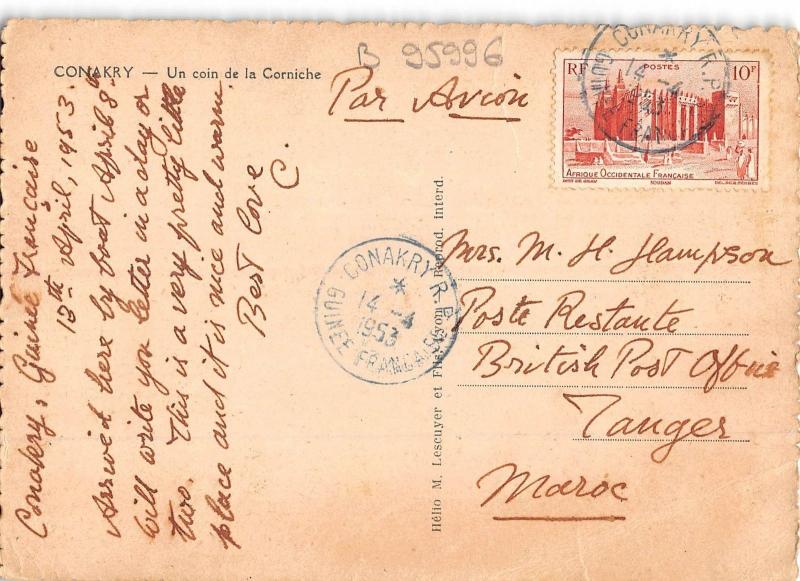 B 95996
CONAKRY — Un coin de la Corniche
Par Avion
RF POSTES 10F
AFRIQUE OCCIDENTALE FRANÇAISE
SOUDAN
CONAKRY R.P.
14 -4
GUINÉE FRANÇAISE
Conakry, Guinée Française
13th April, 1953.
Arrived here by boat April 8th
will write you letter in a day or
two. This is a very pretty little
place and it is nice and warm.
Best love
C.
CONAKRY R.P.
14 -4
1953
GUINÉE FRANÇAISE
Hélio M. Lescuyer et Fils, Lyon Reprod. interd.
Mrs. M. H. Hampson
Poste Restante
British Post Office
Tanger
Maroc